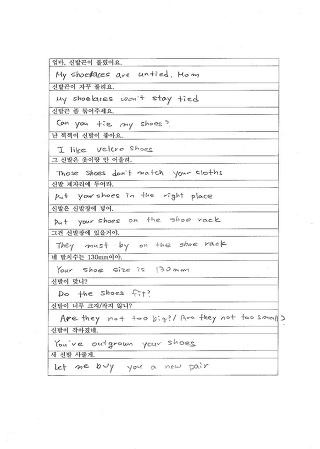 엄마, 신발끈이 풀렸어요.
My shoelaces are untied, Mom
신발끈이 자꾸 풀려요.
My shoelaces won't stay tied
신발끈 좀 묶어주세요.
Can you tie my shoes?
난 찍찍이 신발이 좋아요.
I like velcro shoes
그 신발은 옷이랑 안 어울려.
Those shoes don't match your cloths
신발 제자리에 두어라.
Put your shoes in the right place
신발은 신발장에 넣어.
Put your shoes on the shoe rack
그건 신발장에 있을거야.
They must by on the shoe rack
네 발치수는 130mm이야.
Your shoe size is 130mm
신발이 맞니?
Do the shoes fit?
신발이 너무 크지/작지 않니?
Are they not too big?/Are they not too small?
신발이 작아졌네.
You've outgrown your shoes
새 신발 사줄게.
Let me buy you a new pair